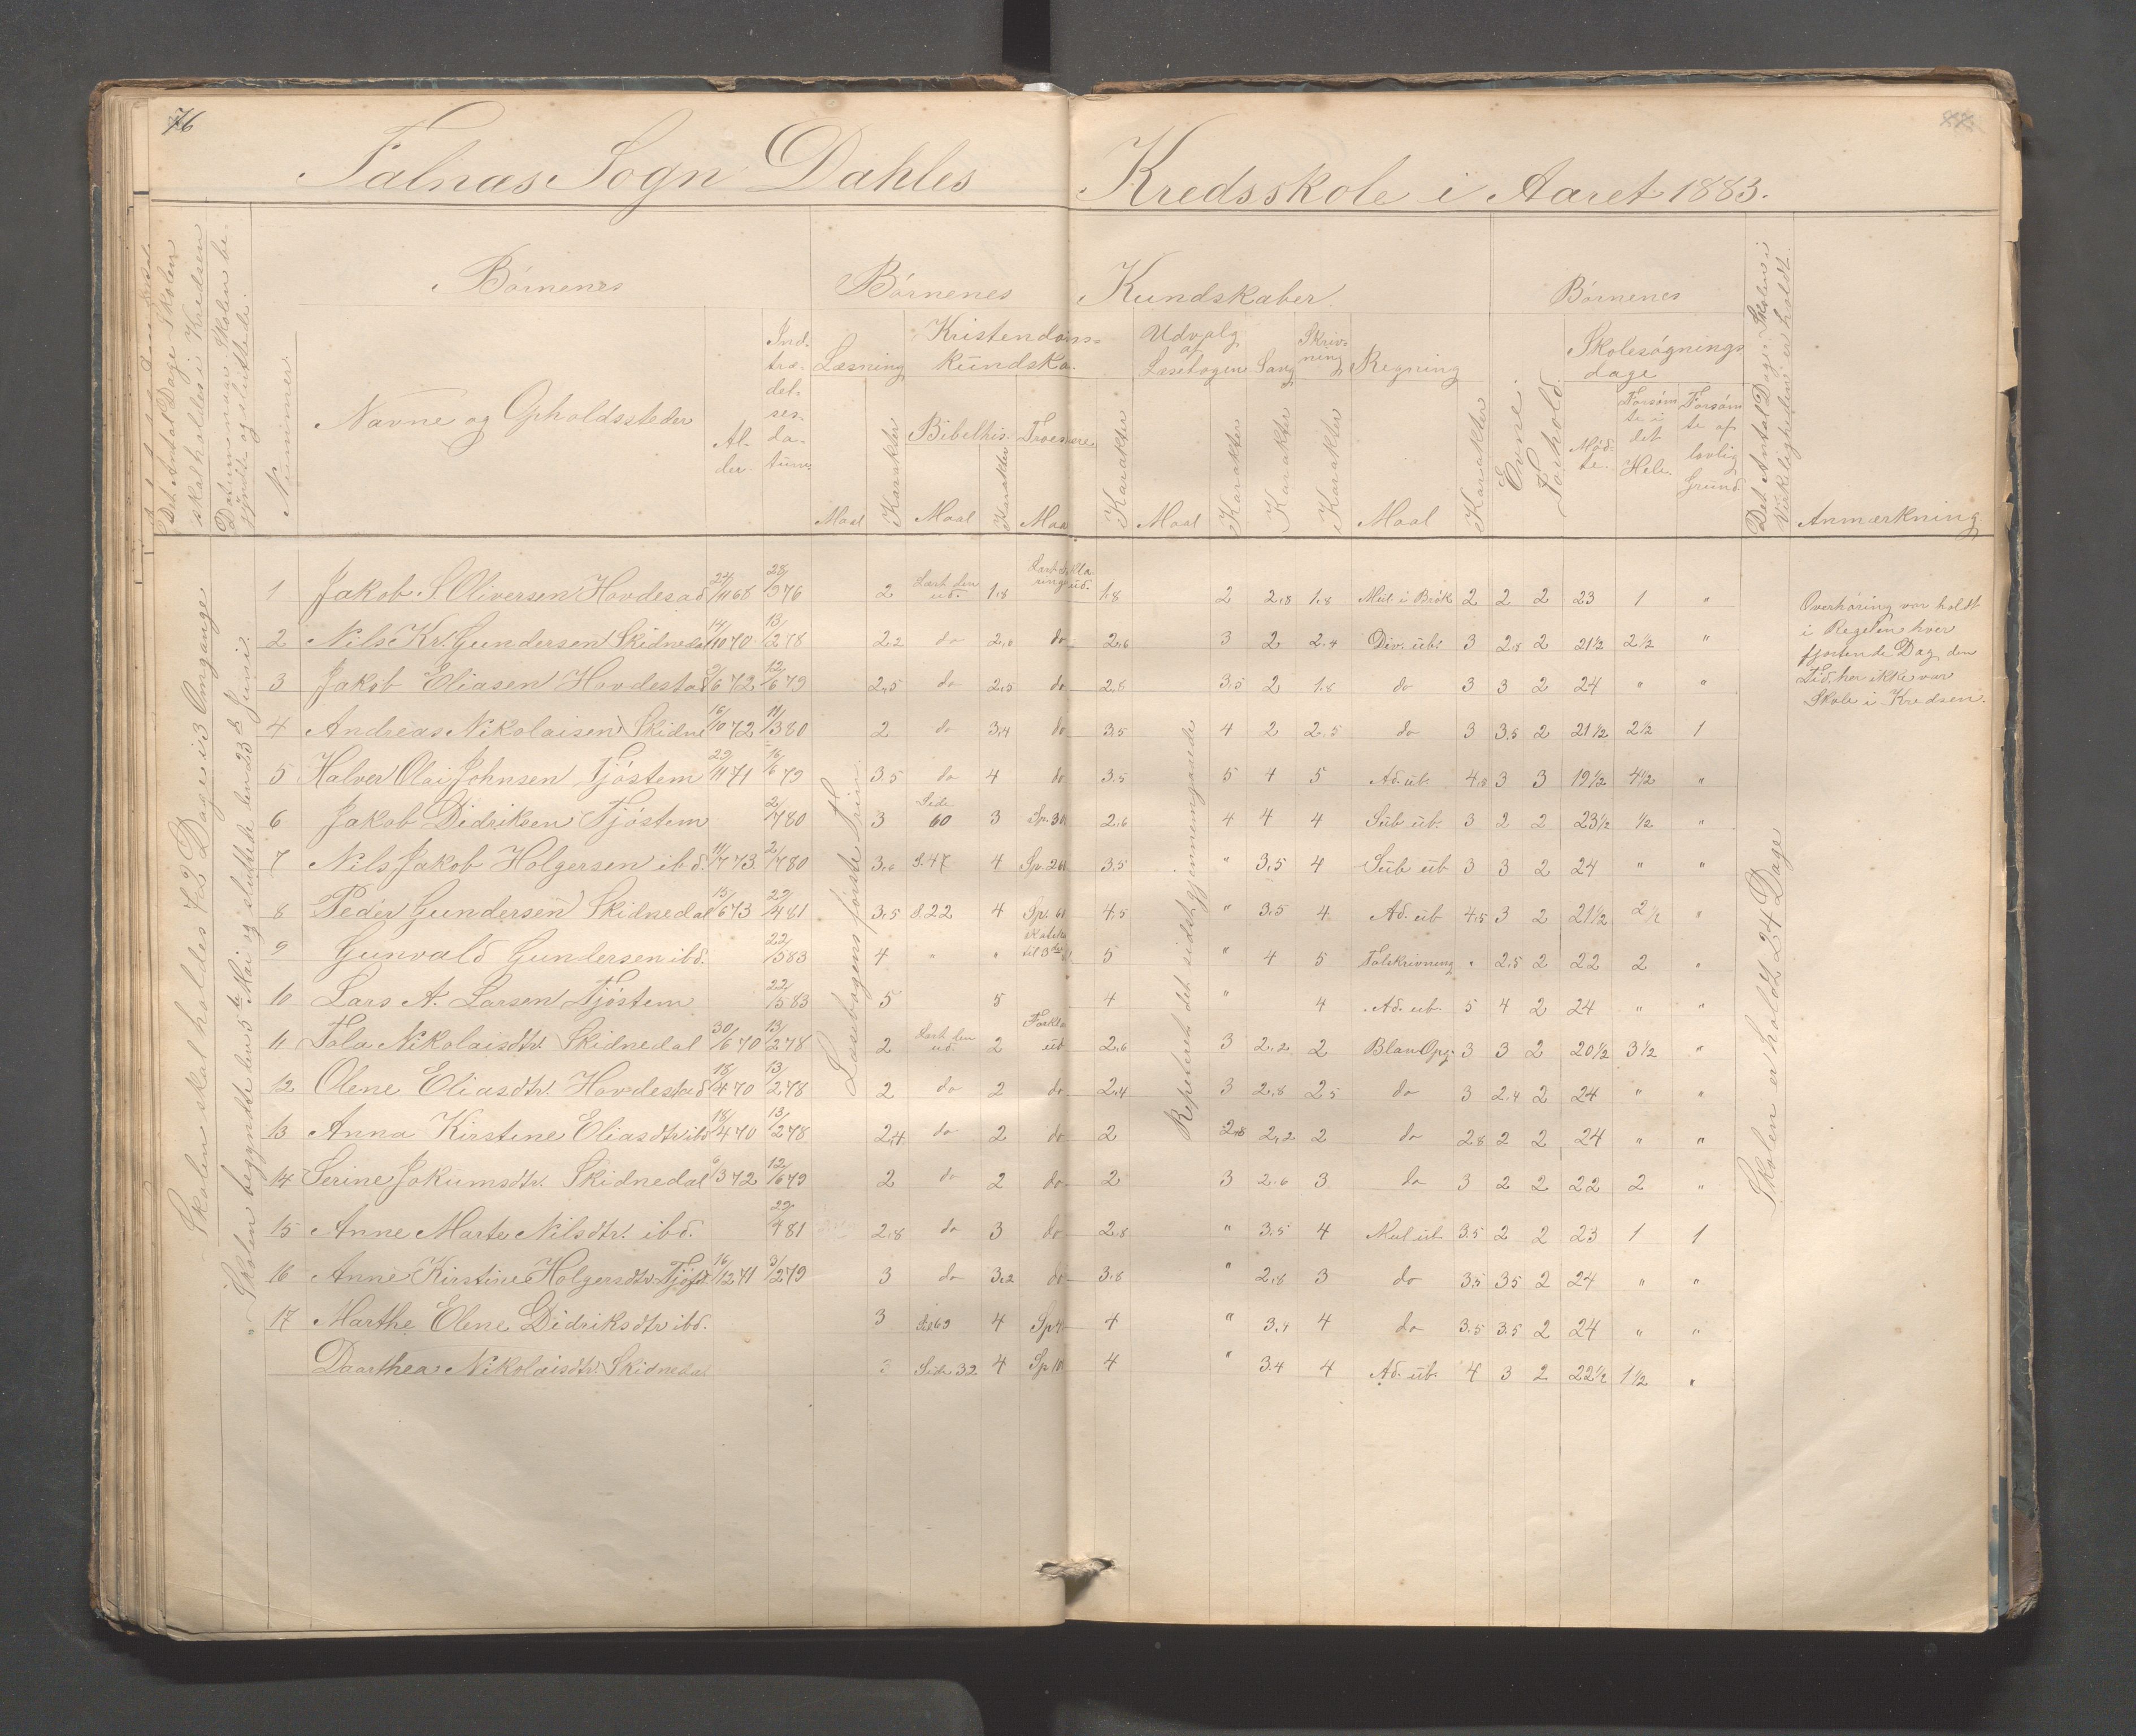 76
Falnæs Sogn Dahles Kredsskole i Aaret 1883.
Det Antal Dage Skolen skal holdes i Kredsen
Datum naar Skolen begyndte og sluttede.
Nummer
Børnenes
Navne og Opholdssteder
Alder.
Indtrædelsesdatum
Børnenes Kundskaber.
Læsning
Maal
Karakter
Kristendomskundska.
Bibelhis.
Maal
Karakter
Troeslære
Maal
Karakter
Udvalg af Læsebogen
Maal
Karakter
Sang
Karakter
Skrivning
Karakter
Regning
Maal
Karakter
Evne.
Forhold.
Børnenes
Skolesøgningsdage
Mødte.
Forsømte i det Hele.
Forsømte af lovlig Grund.
Det Antal Dage Skolen i Virkeligheden er holdt.
Anmærkning
Skolen skal holdes 72 Dage i 3 Omgange
Skolen begyndte den 5te Mai og sluttede den 23de Juni.
Læsebogens første Trin.
Repeteret det sidst gjennemgaaede
Skolen er holdt 24 Dage
1 Jakob S. Oliversen Hovdesad 24/11 68 28/5 76 2 Læst den ud. 1,8 ud. 1,8 2 2,8 1,8 Mul. i Brøk 2 2 2 23 1 "
2 Nils Kr. Gundersen Skidnedal 14/10 70 13/2 78 2,2 do 2,0 do 2,6 3 2 2.4 Div. ub. 3 2,8 2 21½ 2½ "
3 Jakob Eliasen Hovdestad 9/6 72 12/6 79 2,5 do 2,5 do 2,8 3.5 2 1.8 do 3 3 2 24 " "
4 Andreas Nikolaisen Skidne 16/10 72 11/3 80 2 do 3,4 do 3,5 4 2 2.5 do 3 3.5 2 21½ 2½ 1
5 Halver Olai Johnsen Tjøstem 29/11 71 16/6 79 3.5 do 4 do 3.5 5 4 5 Ad. ub. 4,8 3 3 19½ 4½ "
6 Jakob Didriksen Tjøstem 2/7 80 3 Side 60 3 Sp. 30 2,6 4 4 4 Sub ub. 3 2 2 23½ ½ "
7 Nils Jakob Holgersen ibd. 11/7 73 2/7 80 3,6 S. 47 4 Sp. 261 3.5 " 3,5 4 Sub ub 3 3 2 24 " "
8 Peder Gundersen Skidnedal 15/6 73 22/4 81 3,5 S. 22 4 Sp. 61 4.5 " 3.5 4 Ad. ub 4.5 3 2 21½ 2½ "
9 Gunvald Gundersen ibd. 22/5 83 4 " " til 3die 5 " 4 5 Talskrivning " 2.5 2 22 2 "
10 Lars A. Larsen Tjøstem 22/5 83 5 5 4 " 4 Ad. ub. 5 4 2 24 " "
11 Tola Nikolaisdtr. Skidnedal 30/6 70 13/2 78 2 Læst den ud. 2 Forkla ud 2,6 3 2,2 2 Blan Opg. 3 3 2 20½ 3½ "
12 Olene Eliasdtr. Hovdestad 18/4 70 13/2 78 2 do 2 do 2,4 3 2,8 2.5 do 3 2.4 2 24 " "
13 Anna Kirstine Eliasdtr ibd 18/4 70 13/2 78 2,4 do 2 do 2 2,8 2,2 2 do 2 8 2 2 24 " "
14 Serine Jokumsdtr. Skidnedal 6/3 72 12/6 79 2 do 2 do 2 3 2.6 3 do 3 2 2 22 2 "
15 Anne Marte Nilsdtr. ibd. 22/4 81 2,8 do 3 do 2,8 " 3.5 4 Mul ub 3.5 2 2 23 1 1
16 Anne Kirstine Holgersdtr Tjøst 16/12 71 3/2 79 3 do 3,2 do 3,8 " 2,8 3 do 3.5 3 5 2 24 " "
17 Marthe Elene Didriksdtr ibd. 3 69 4 Sp 4 " 3,4 4 do 3.5 3.5 2 24 " "
Daarthea Nikolaisdtr. Skidnedal 3 Side 32 4 Sp 4 " 3.4 4 Ad. ub. 4 3 2 22½ 1½ "
Overhøring var holdt
i Regelen hver
fjortende Dag den
Tid, her ikke var
Skole i Kredsen.